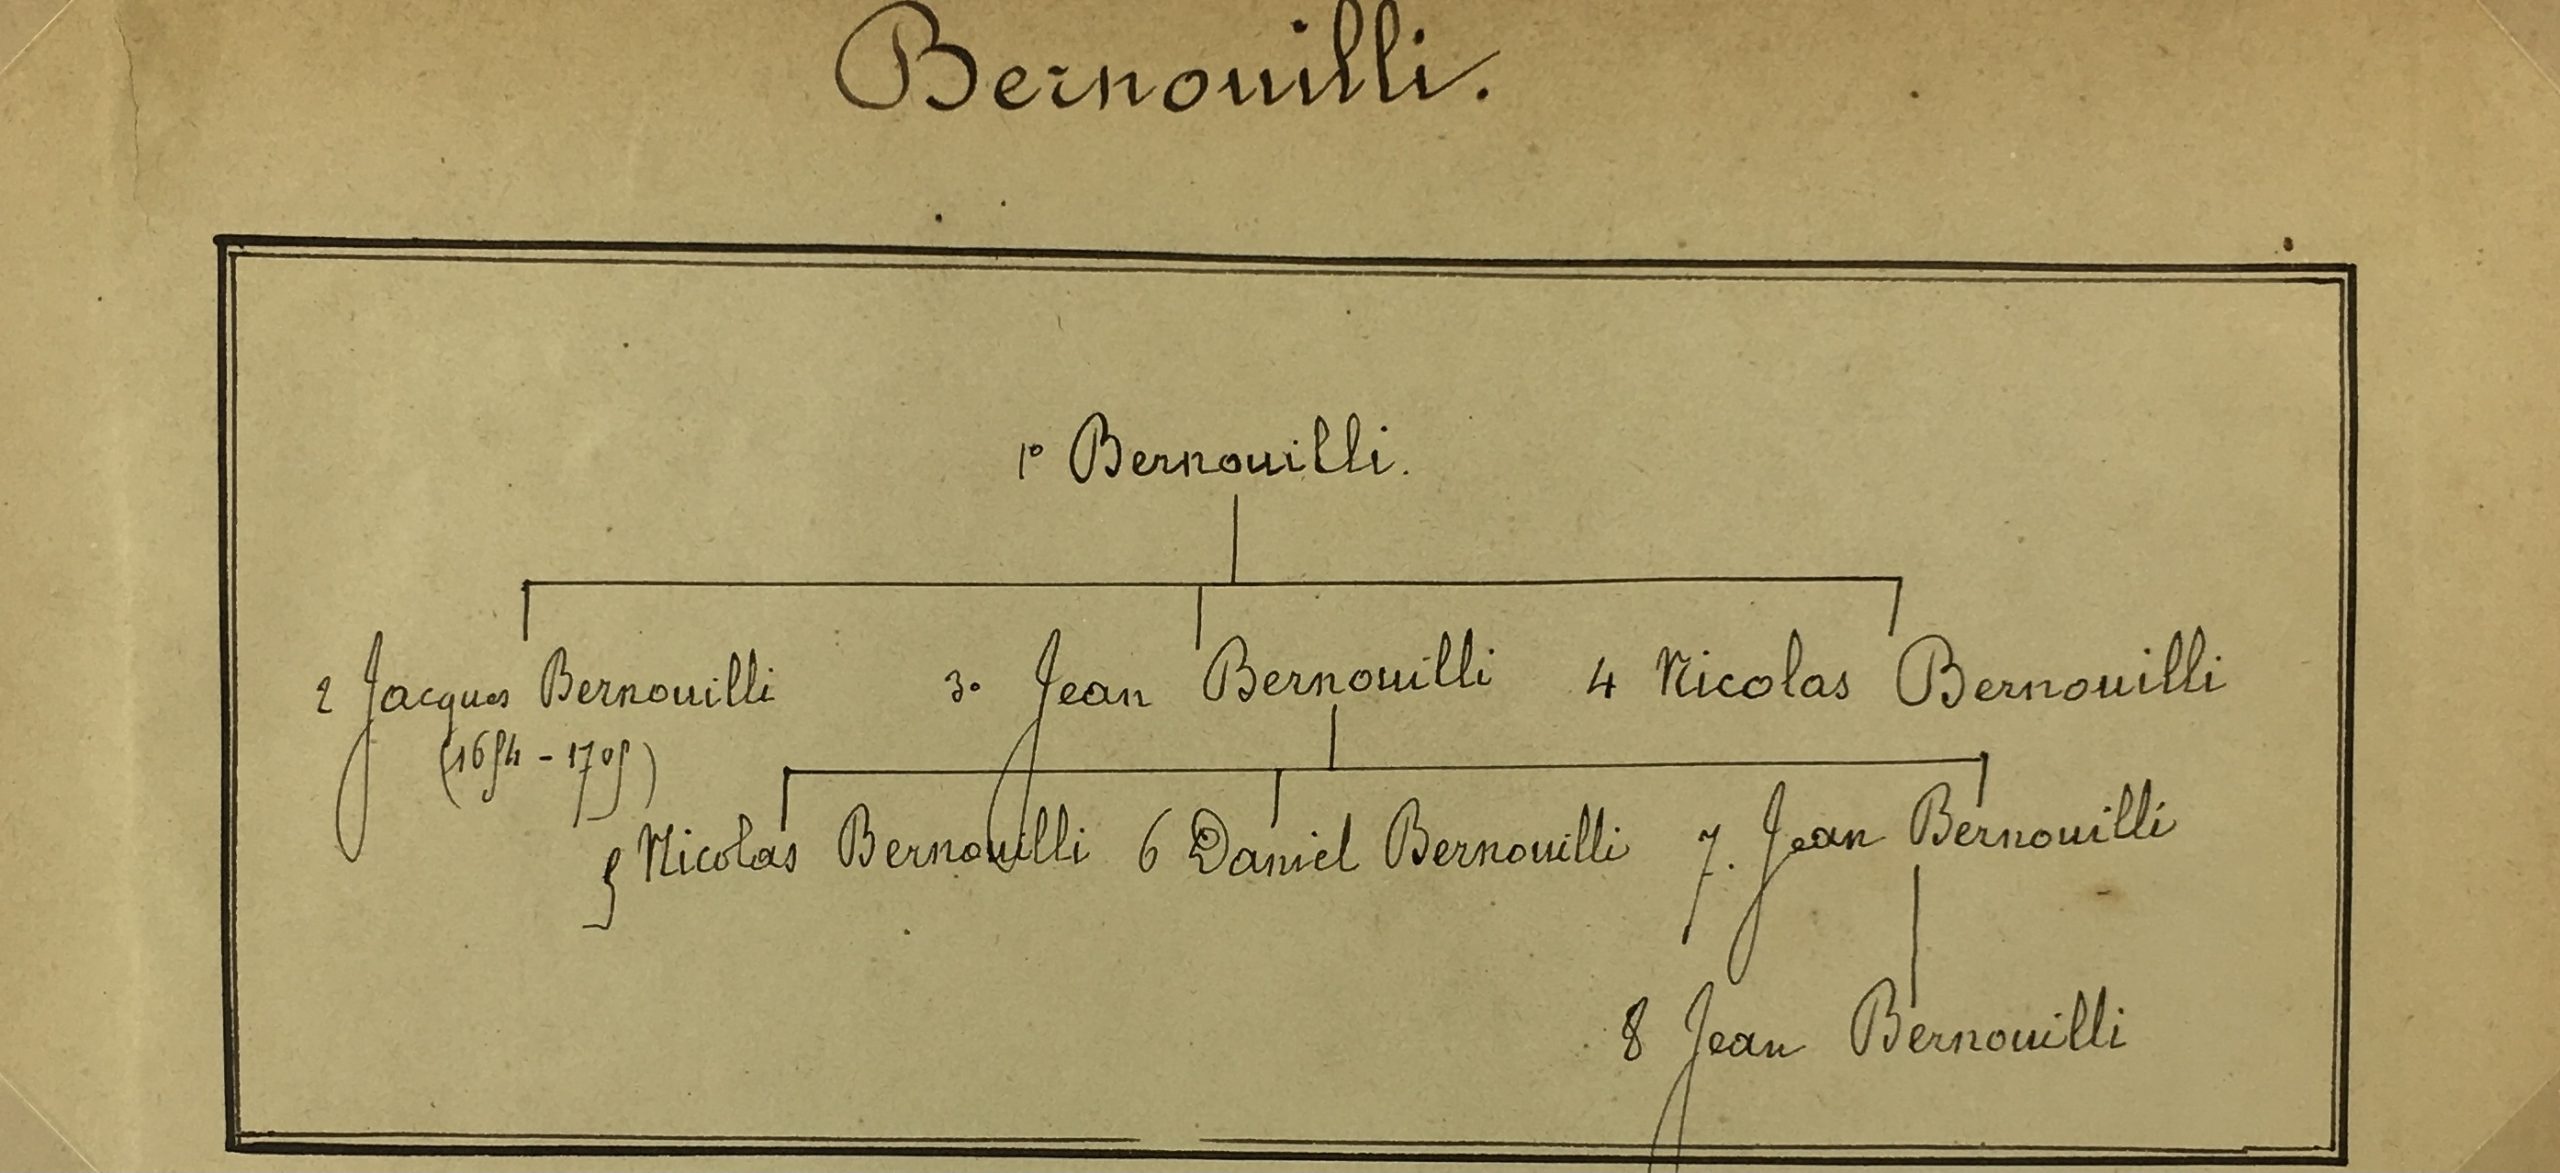 Bernouilli.
1° Bernouilli.
2 Jacques Bernouilli 3° Jean Bernouilli 4 Nicolas Bernouilli
(1654 - 1705)
5 Nicolas Bernouilli 6 Daniel Bernouilli 7. Jean Bernouilli
8 Jean Bernouilli